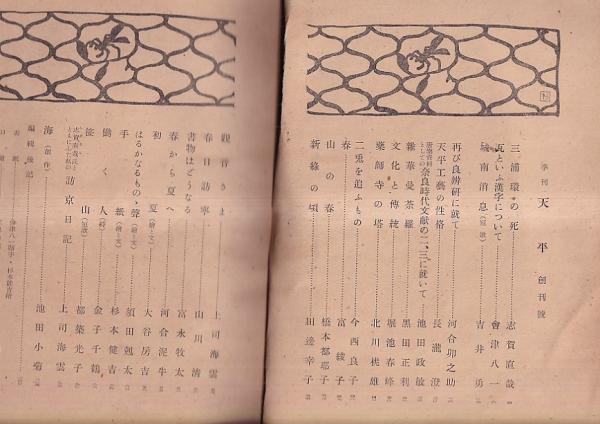 季刊 天平 創刊號
三浦環の死 志賀直哉
瓦といふ漢字について 會津八一
城南消息（短歌） 吉井勇
再び良辨研に就て 河合卯之助
天平工藝の性格 長瀧澄
としての奈良時代文献の二、三に就いて 池田政敏
雜華曼荼羅 黒田正利
文化と傳統 堀池春峰
藥師寺の塔 北川桃雄
二兎を追ふもの 今西良子
春 富綾子
山の春 橋本都耶子
新綠の頃 田邊幸子
觀音さま 上司海雲
春日訪寧 山川清
書物はどうなる 富永牧太
春から夏へ 河合泥牛
初夏（繪と文） 大谷房吉
はるかなるものゝ聲（繪と文） 須田剋太
手紙（繪と文） 杉本健吉
働く人（詩） 金子千鶴
笹山（短歌） 都築光子
志賀直哉氏と
訪京日記 上司海雲
海（創作） 池田小菊
編輯後記
會津八一題字・杉本健吉繪